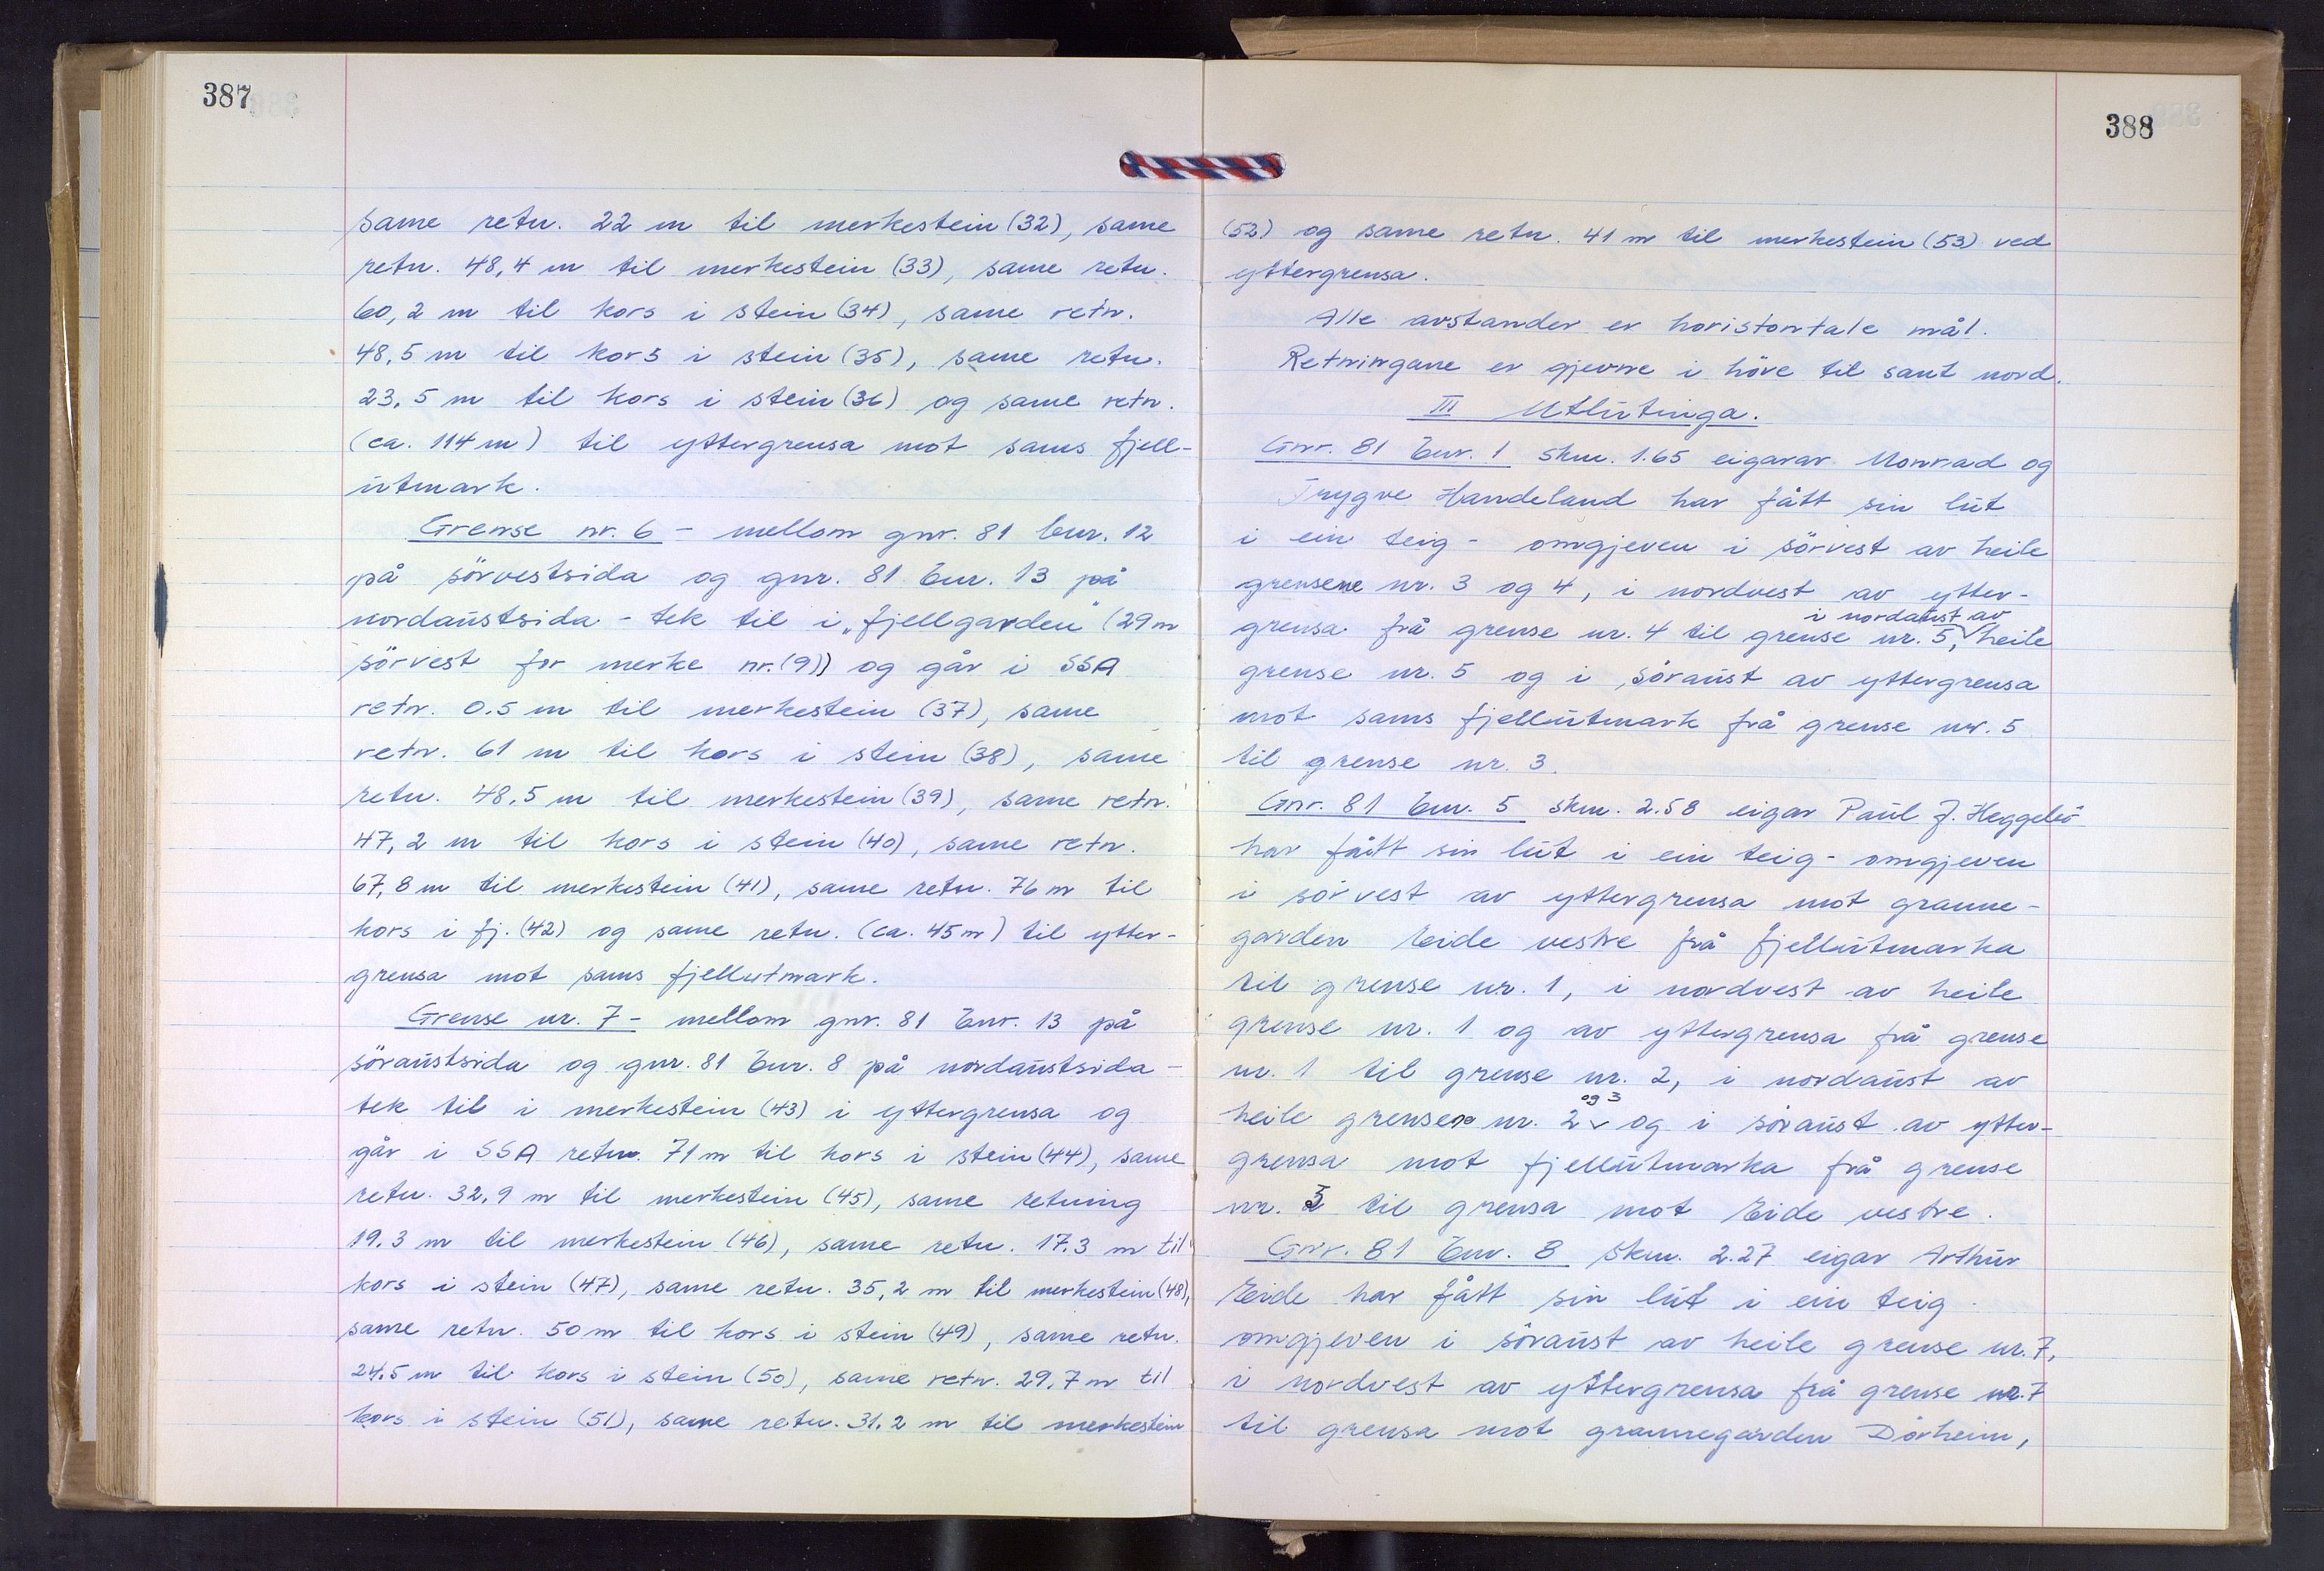 387
same retn. 22 m til merkestein (32), same
retn. 48,4 m til merkestein (33), same retn.
60,2 m til kors i stein (34), same retn.
48,5 m til kors i stein (35), same retn.
23,5 m til kors i stein (36) og same retn.
(ca. 114 m) til yttergrensa mot sams fjell-
utmark.
Grense nr. 6 - mellom gnr. 81 bnr. 12
på sörvestsida og gnr. 81 bnr. 13 på
nordaustsida - tek til i „fjellgarden" (29 m
sörvest for merke nr. (9)) og går i SSA
retn. 0.5 m til merkestein (37), same
retn. 61 m til kors i stein (38), same
retn. 48,5 m til merkestein (39), same retn.
47,2 m til kors i stein (40), same retn.
67,8 m til merkestein (41), same retn. 76 m til
kors i fj. (42) og same retn. (ca. 45 m) til ytter-
grensa mot sams fjellutmark.
Grense nr. 7 - mellom gnr. 81 bnr. 13 på
söraustsida og gnr. 81 bnr. 8 på nordaustsida -
tek til i merkestein (43) i yttergrensa og
går i SSA retn. 71 m til kors i stein (44), same
retn. 32,9 m til merkestein (45), same retning
19.3 m til merkestein (46), same retn. 17.3 m til
kors i stein (47), same retn. 35,2 m til merkestein (48),
same retn. 50 m til kors i stein (49), same retn.
24,5 m til kors i stein (50), same retn. 29,7 m til
kors i stein (51), same retn. 31.2 m til merkestein
388
(52) og same retn. 41 m til merkestein (53) ved
yttergrensa.
Alle avstander er horistontale mål.
Retningane er gjevne i höve til sant nord.
III Utlutinga.
Gnr. 81 bnr. 1 skm. 1.65 eigarar Monrad og
Trygve Handeland har fått sin lut
i ein teig - omgjeven i sörvest av heile
grensene nr. 3 og 4, i nordvest av ytter-
i nordaust av
grensa frå grense nr. 4 til grense nr. 5, heile
grense nr. 5 og i söraust av yttergrensa
mot sams fjellutmark frå grense nr. 5
til grense nr. 3.
Gnr. 81 bnr. 5 skm. 2.58 eigar Paul J.
har fått sin lut i ein teig - omgjeven
i sörvest av yttergrensa mot granne-
garden Eide vestre frå fjellutmarka
til grense nr. 1, i nordvest av heile
grense nr. 1 og av yttergrensa frå grense
nr. 1 til grense nr. 2, i nordaust av
og 3
heile grensene nr. 2 og i söraust av ytter-
grensa mot fjellutmarka frå grense
nr. 3 til grensa mot Eide vestre.
Gnr. 81 bnr. 8 skm. 2.27 eigar Arthur
Eide har fått sin lut i ein teig -
omgjeven i söraust av heile grense nr. 7,
i nordvest av yttergrensa frå grense nr. 7
til grensa mot grannegarden Dörheim,